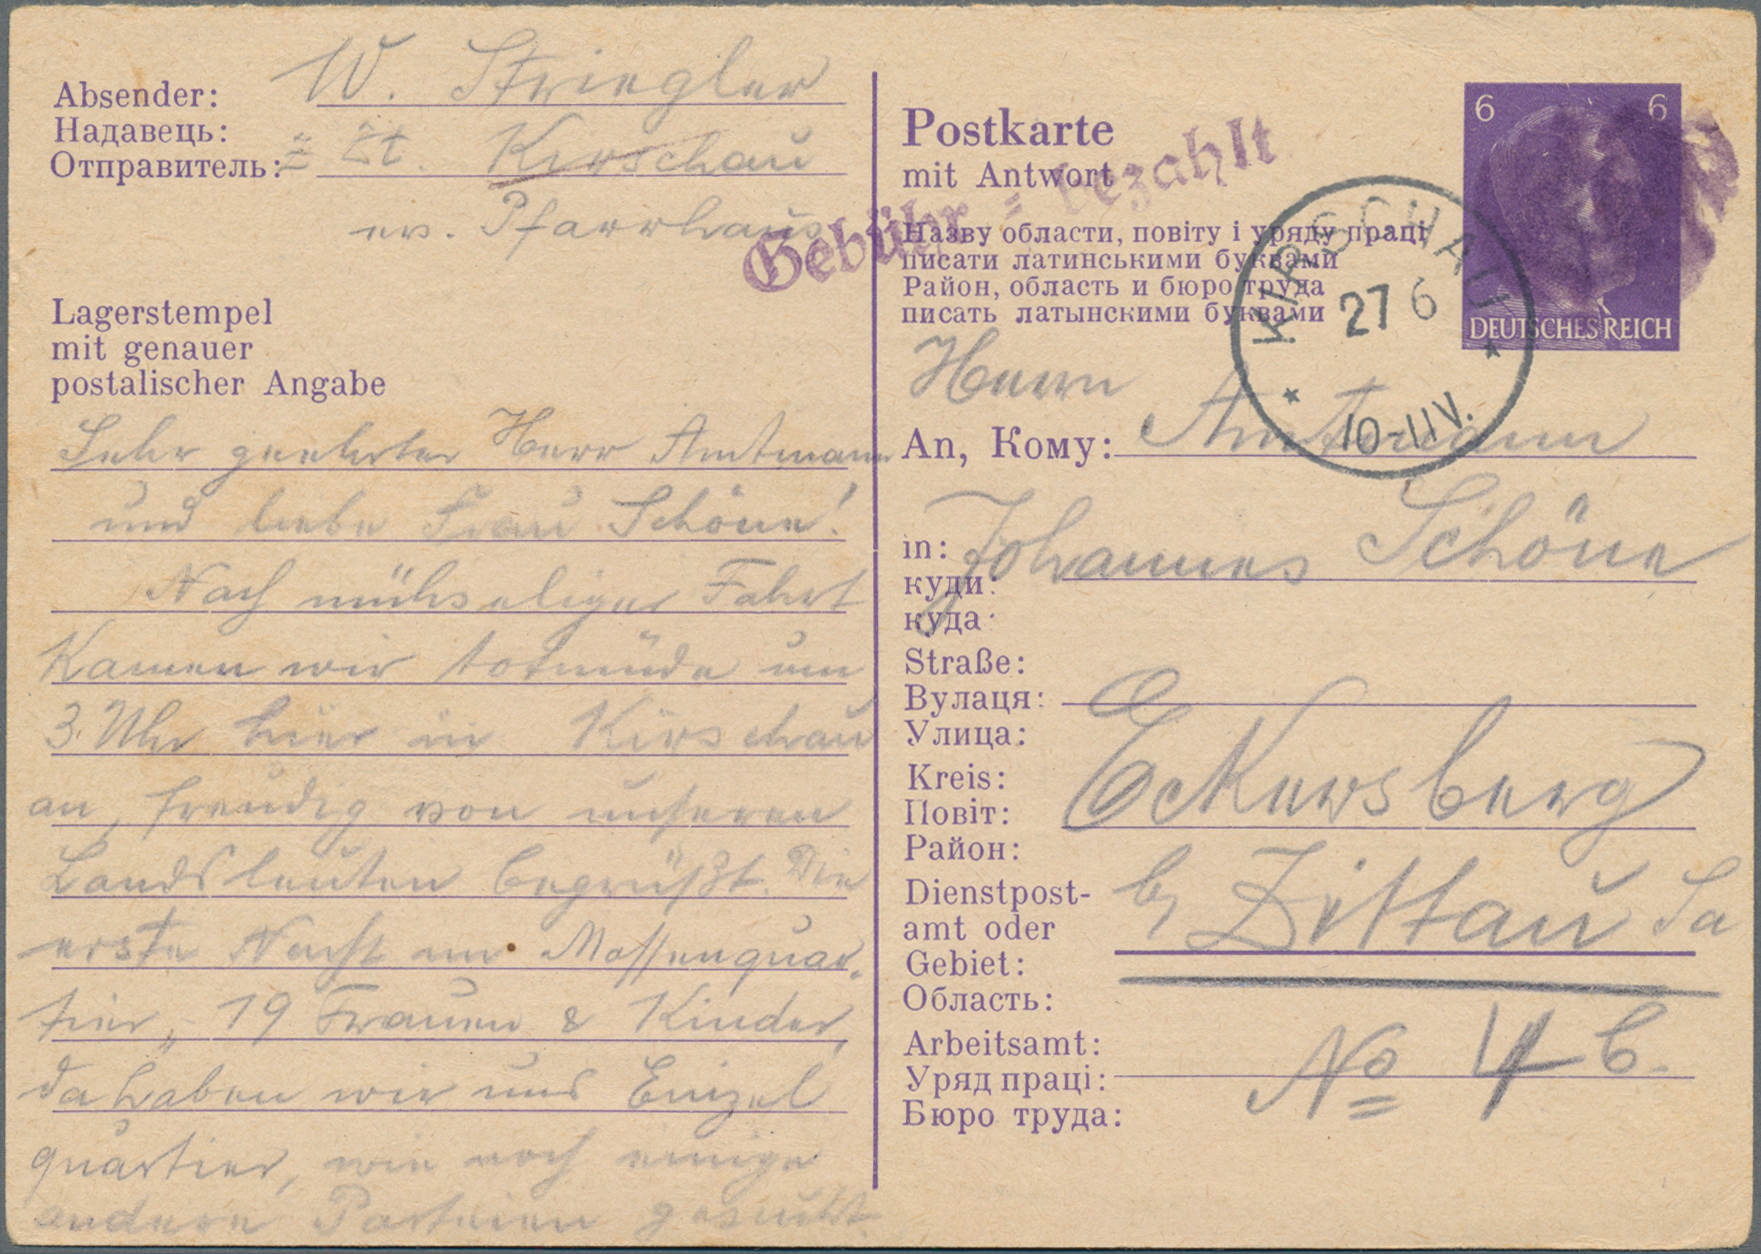 Absender:
Надавець:
Отправитель:
W. Striegler
z Zt. Kirschau
ev. Pfarrhaus
Lagerstempel
mit genauer
postalischer Angabe
Sehr geehrter Herr Amtmann
und liebe Frau Schöne!
Nach mühseliger Fahrt
Kamen wir totmüde um
3 Uhr hier in Kirschau
an, freudig von unseren
Landsleuten begrüßt. Die
erste Nacht im Massenquar-
tier, 19 Frauen & Kinder,
da haben wir uns Einzel
quartier, wie noch einige
andere Parteien gesucht
Postkarte
mit Antwort
Gebühr = bezahlt
Назву области, повіту і уряду праці
писати латинськими буквами
Район, область и бюро труда
писать латынскими буквами
6 6
DEUTSCHES REICH
KIRSCHAU
27 6
10-11V.
Herrn
An, Кому: Amtmann
in:
куди:
куда:
Johannes Schöne
Straße:
Вулаця:
Улица:
Kreis:
Повіт:
Район:
Eckersberg
Dienstpost-
amt oder
Gebiet:
Область:
b/ Zittau Sa
Arbeitsamt:
Уряд праці:
Бюро труда:
No 4 b.